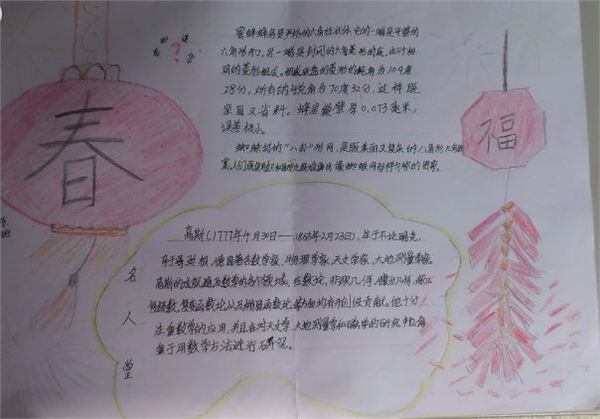 春
福
？
蜜蜂蜂房是严格的六角柱状体，它的一端是平整的
六角形开口，另一端是封闭的六角菱形的底，由三个相
同的菱形组成。组成底盘的菱形的钝角为109度
28分，所有的锐角为70度32分，这样既
坚固又省料。蜂房巢壁厚0.073毫米，
误差极小。
蜘蛛结的“八卦”形网，是既复杂又美丽的八角形几何图
案，人们
名人堂
高斯（1777年4月30日——1855年2月23日），生于不伦瑞克，
卒于哥廷根，德国著名数学家、物理学家、天文学家、大地测量学家。
高斯的成就遍及数学的各个领域，在数论、非欧几何、微分几何、超几
何级数、复变函数论以及椭圆函数论等方面均有开创性贡献。他十分
注重数学的应用，并且在对天文学、大地测量学和磁学的研究中也偏
重于用数学方法进行研究。